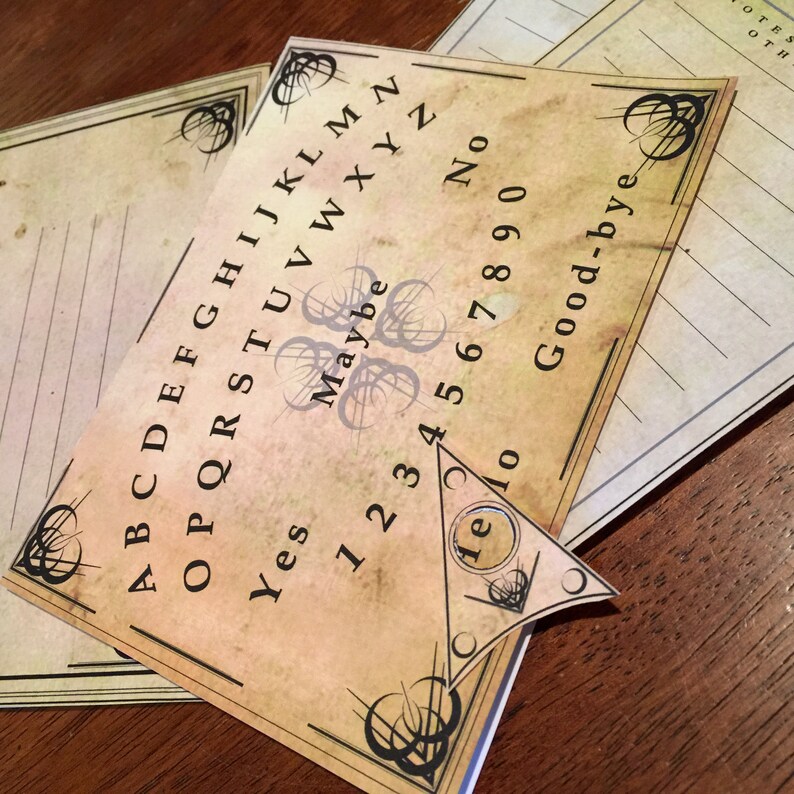 A B C D E F G H I J K L M N
O P Q R S T U V W X Y Z
Yes Maybe No
1 2 3 4 5 6 7 8 9 0
lo Good-bye
NOTES
OTH